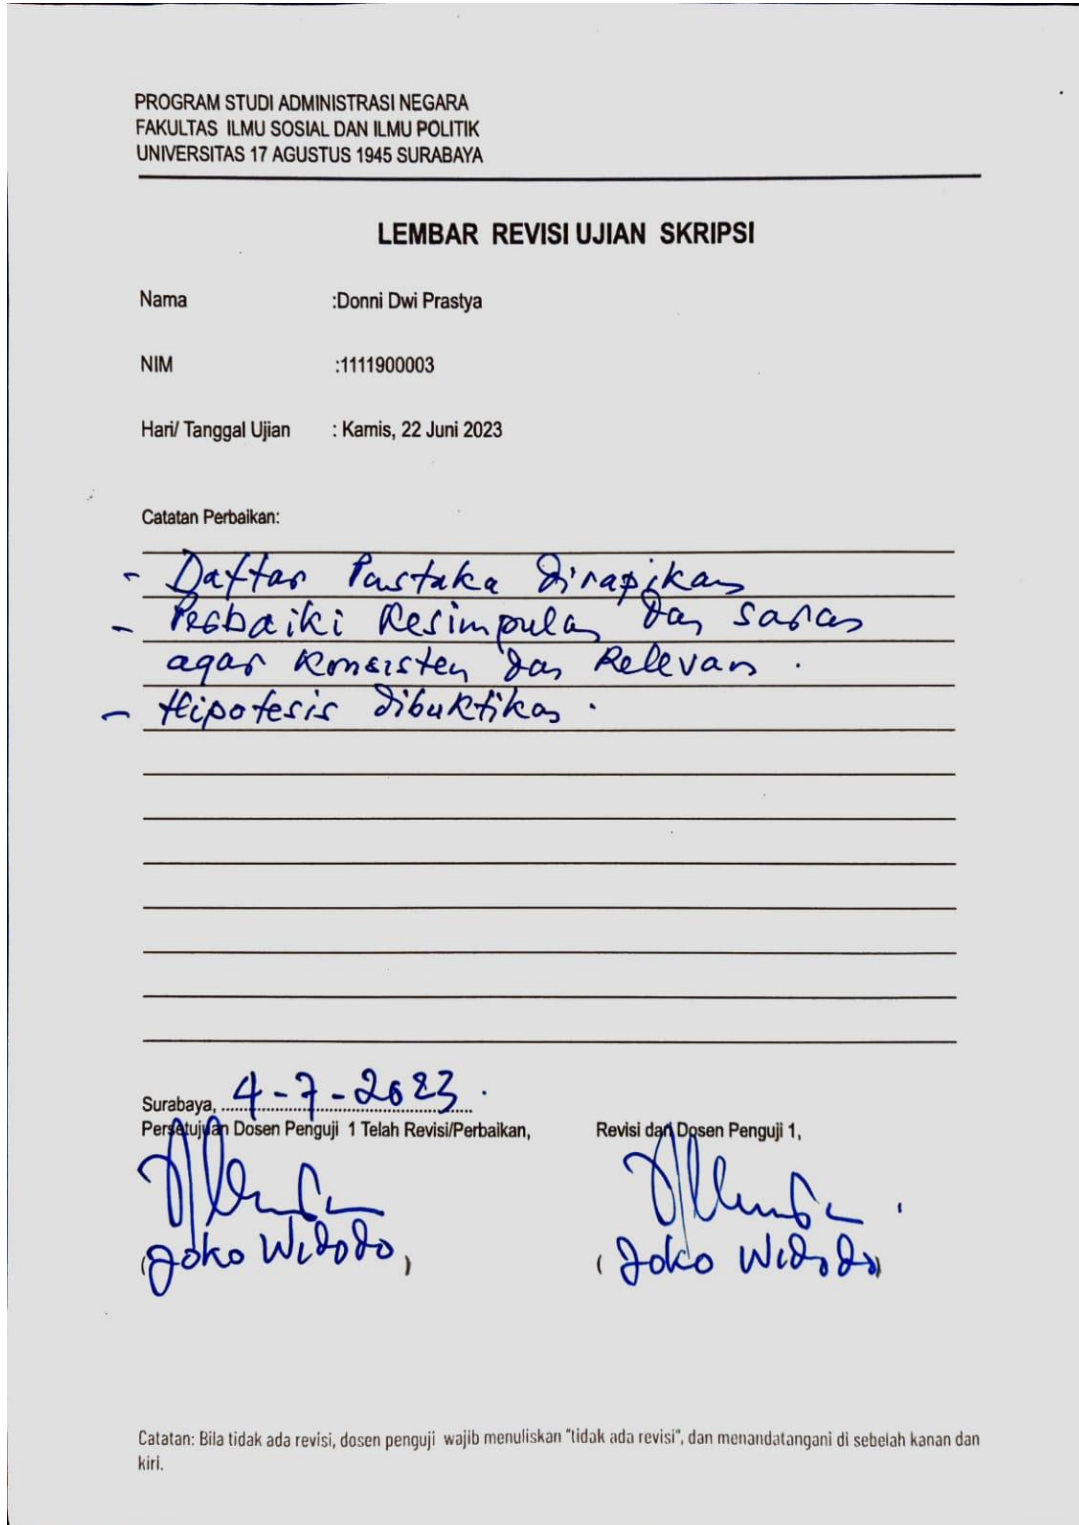 PROGRAM STUDI ADMINISTRASI NEGARA
FAKULTAS ILMU SOSIAL DAN ILMU POLITIK
UNIVERSITAS 17 AGUSTUS 1945 SURABAYA
LEMBAR REVISI UJIAN SKRIPSI
Nama :Donni Dwi Prastya
NIM :1111900003
Hari/ Tanggal Ujian : Kamis, 22 Juni 2023
Catatan Perbaikan:
- Daftar Pustaka dirapikan
- Perbaiki Kesimpulan dan saran
agar Konsisten dan Relevan .
- Hipotesis dibuktikan .
Surabaya, 4-7-2023 .
Persetujuan Dosen Penguji 1 Telah Revisi/Perbaikan, Revisi dari Dosen Penguji 1,
(Joko Widodo,) (Joko Widodo)
Catatan: Bila tidak ada revisi, dosen penguji wajib menuliskan "tidak ada revisi", dan menandatangani di sebelah kanan dan
kiri.